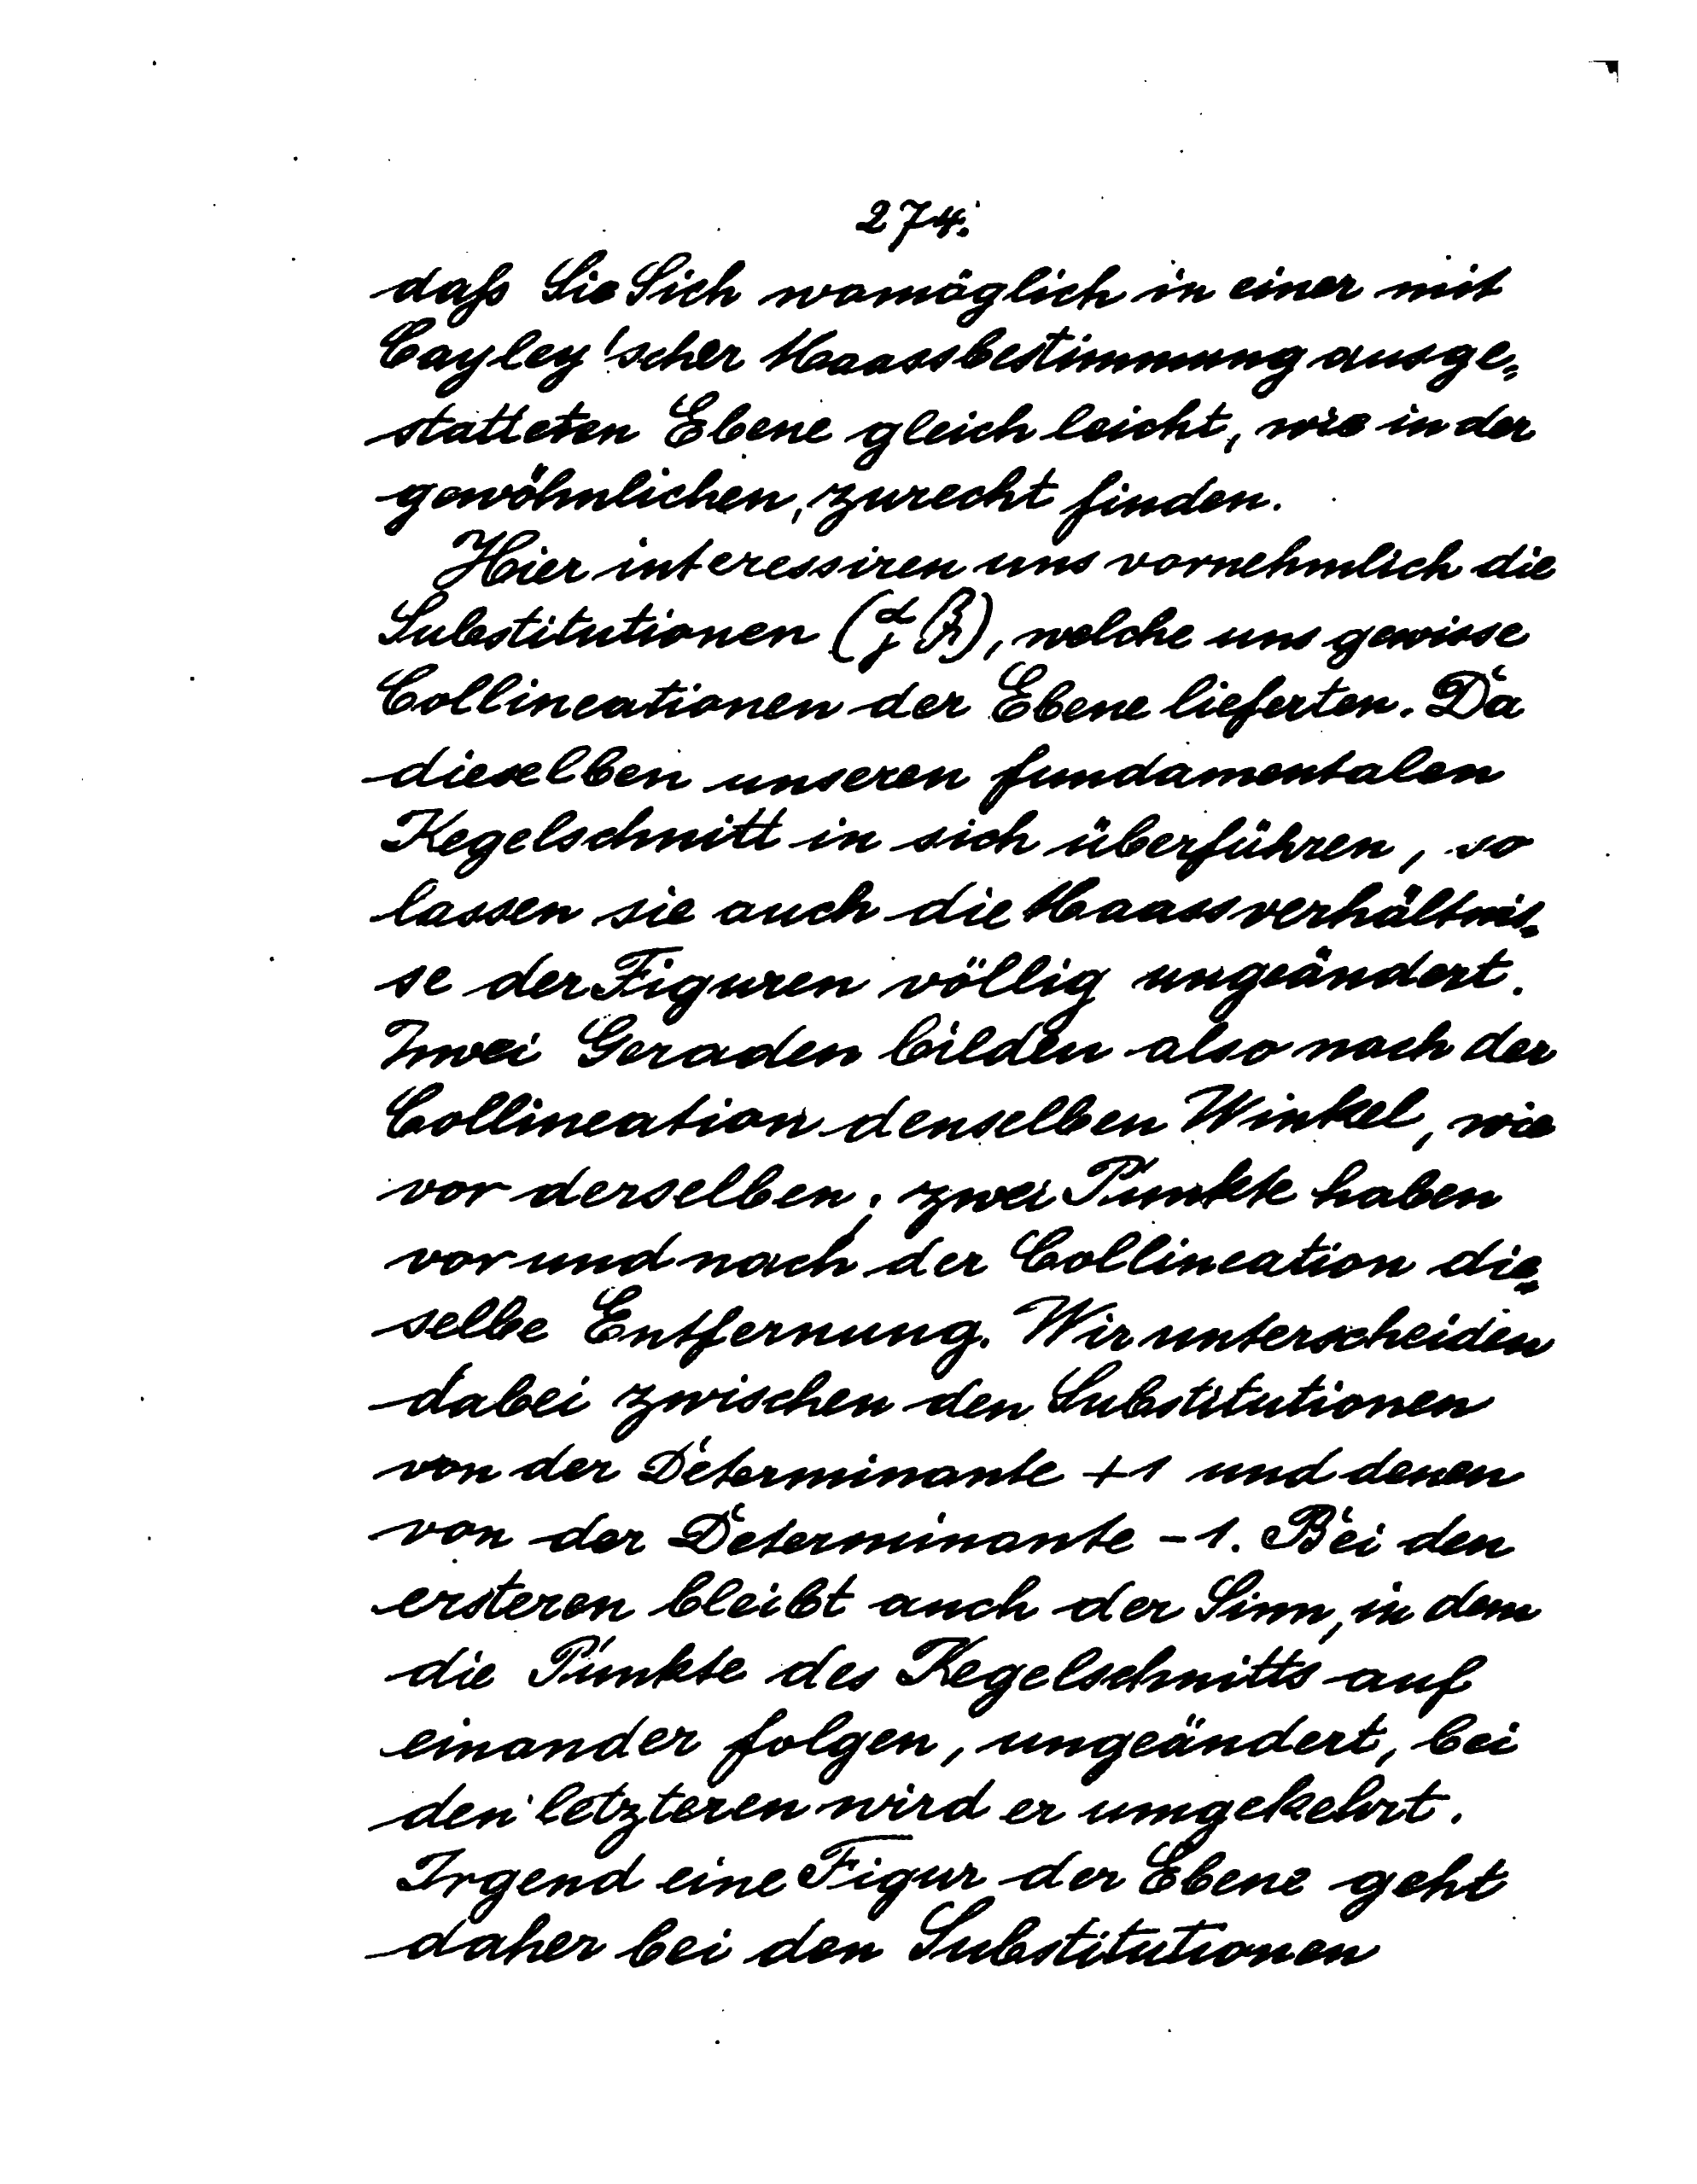 274.
daß Sie Sich womöglich in einer mit
Cayley'scher Maassbestimmung ausge-
statteten Ebene gleich leicht, wie in der
gewöhnlichen, zurecht finden.
Hier interessiren uns vornehmlich die
Substitutionen (α β γ δ), welche uns gewisse
Collineationen der Ebene lieferten. Da
dieselben unseren fundamentalen
Kegelschnitt in sich überführen, so
lassen sie auch die Maassverhältnis-
se der Figuren völlig ungeändert.
Zwei Geraden bilden also nach der
Collineation denselben Winkel, wie
vor derselben; zwei Punkte haben
vor und nach der Collineation die-
selbe Entfernung. Wir unterscheiden
dabei zwischen den Substitutionen
von der Determinante +1 und denen
von der Determinante -1. Bei den
ersteren bleibt auch der Sinn, in dem
die Punkte des Kegelschnitts auf
einander folgen, ungeändert, bei
den letzteren wird er umgekehrt.
Irgend eine Figur der Ebene geht
daher bei den Substitutionen